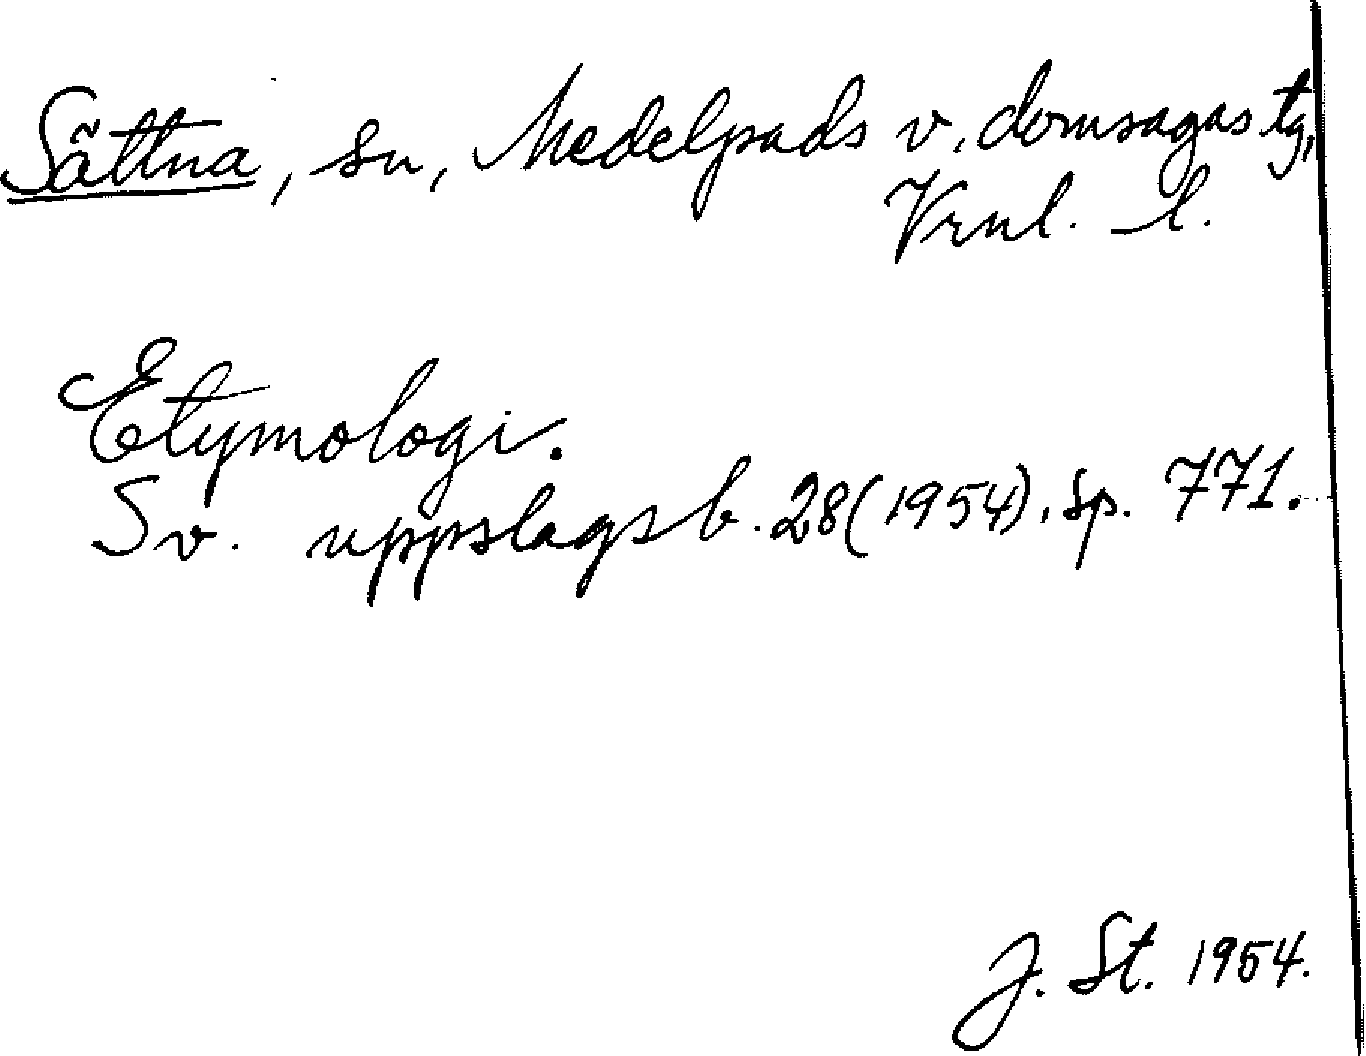 Sättna, sn, Medelpads v. domsagas tg,
Vrnl. l.
Etymologi.
Sv. uppslagsb. 28 (1954), sp. 771.
J. St. 1954.